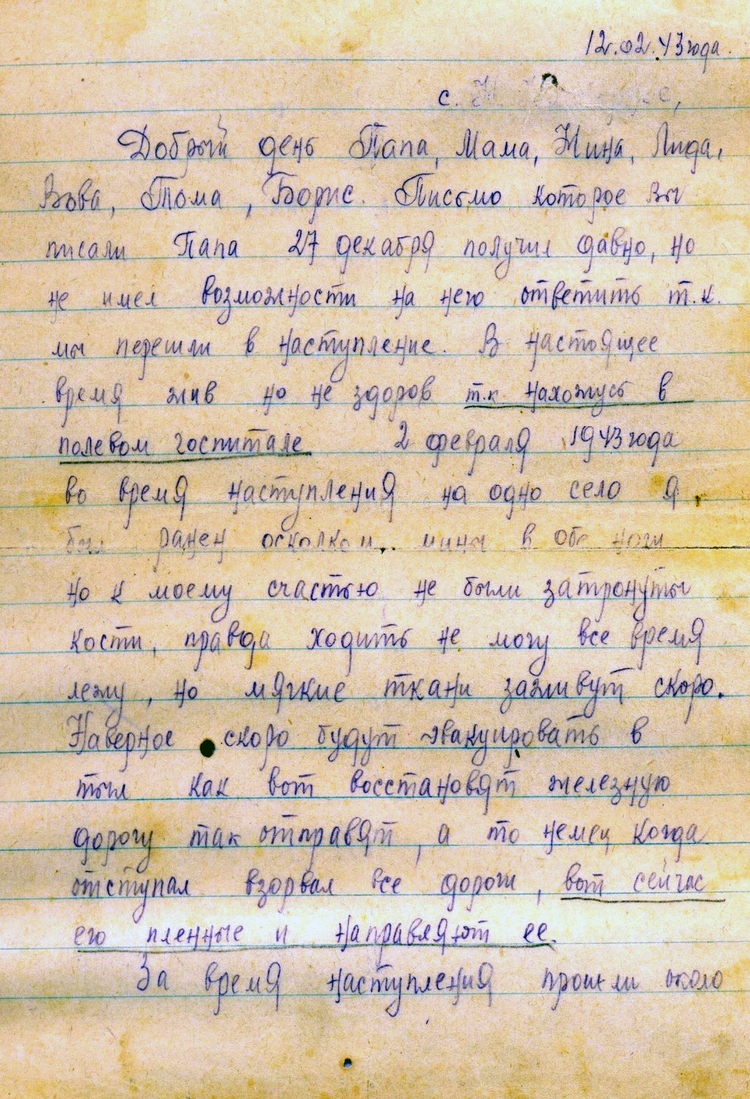 12.02.43 года.
с.
Добрый день Папа, Мама, Нина, Лида,
Вова, Тома, Борис. Письмо которое вы
писали Папа 27 декабря получил давно, но
не имел возможности на него ответить т.к.
мы перешли в наступление. В настоящее
время жив но не здоров т.к. нахожусь в
полевом госпитале 2 февраля 1943 года
во время наступления на одно село я
был ранен осколком мины в обе ноги
но к моему счастью не были затронуты
кости, правда ходить не могу все время
лежу, но мягкие ткани заживут скоро.
Наверное скоро будут эвакуировать в
тыл как вот восстановят железную
дорогу так отправят, а то немец когда
отступал взорвал все дороги, вот сейчас
его пленные и направляют ее.
За время наступления прошли около